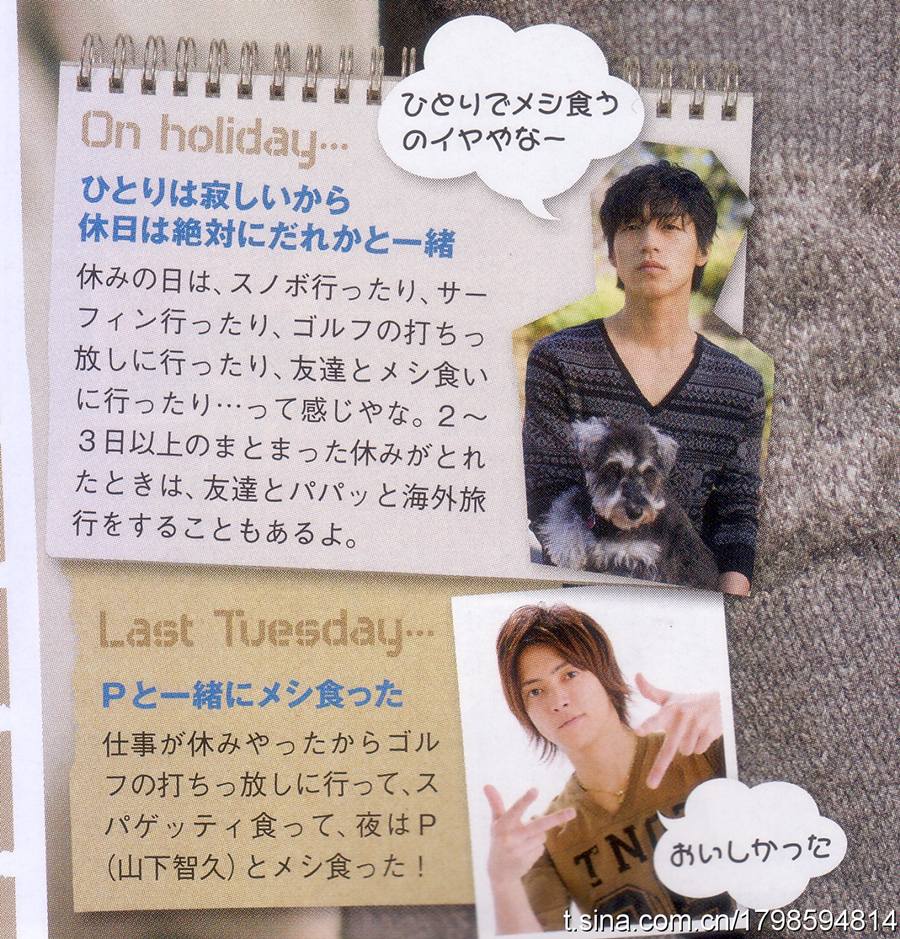 ひとりでメシ食う
のイヤやな〜
On holiday…
ひとりは寂しいから
休日は絶対にだれかと一緒
休みの日は、スノボ行ったり、サー
フィン行ったり、ゴルフの打ちっ
放しに行ったり、友達とメシ食い
に行ったり…って感じやな。2〜
3日以上のまとまった休みがとれ
たときは、友達とパパッと海外旅
行をすることもあるよ。
Last Tuesday…
Pと一緒にメシ食った
仕事が休みやったからゴル
フの打ちっ放しに行って、ス
パゲッティ食って、夜はP
(山下智久)とメシ食った!
おいしかった
t.sina.com.cn/1798594814